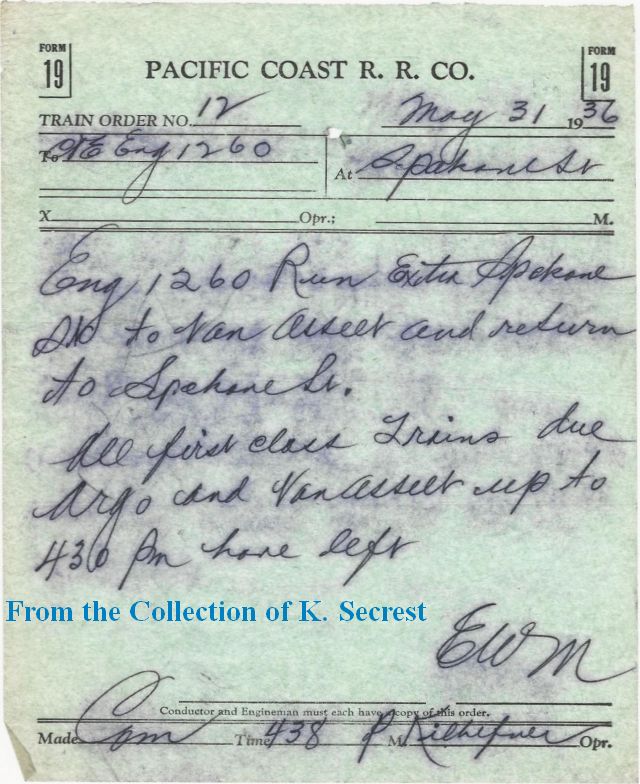 FORM 19
PACIFIC COAST R. R. CO.
FORM 19
TRAIN ORDER NO. 12 May 31 1936
To C&E Eng 1260
At Spokane St
X Opr.; M.
Eng 1260 Run Extra Spokane
St to Van Asselt and return
to Spokane St.
All first class Trains due
Argo and Van Asselt up to
430 Pm have left
From the Collection of K. Secrest
EWM
Conductor and Engineman must each have a copy of this order.
Made Com Time 438 P M. Opr.